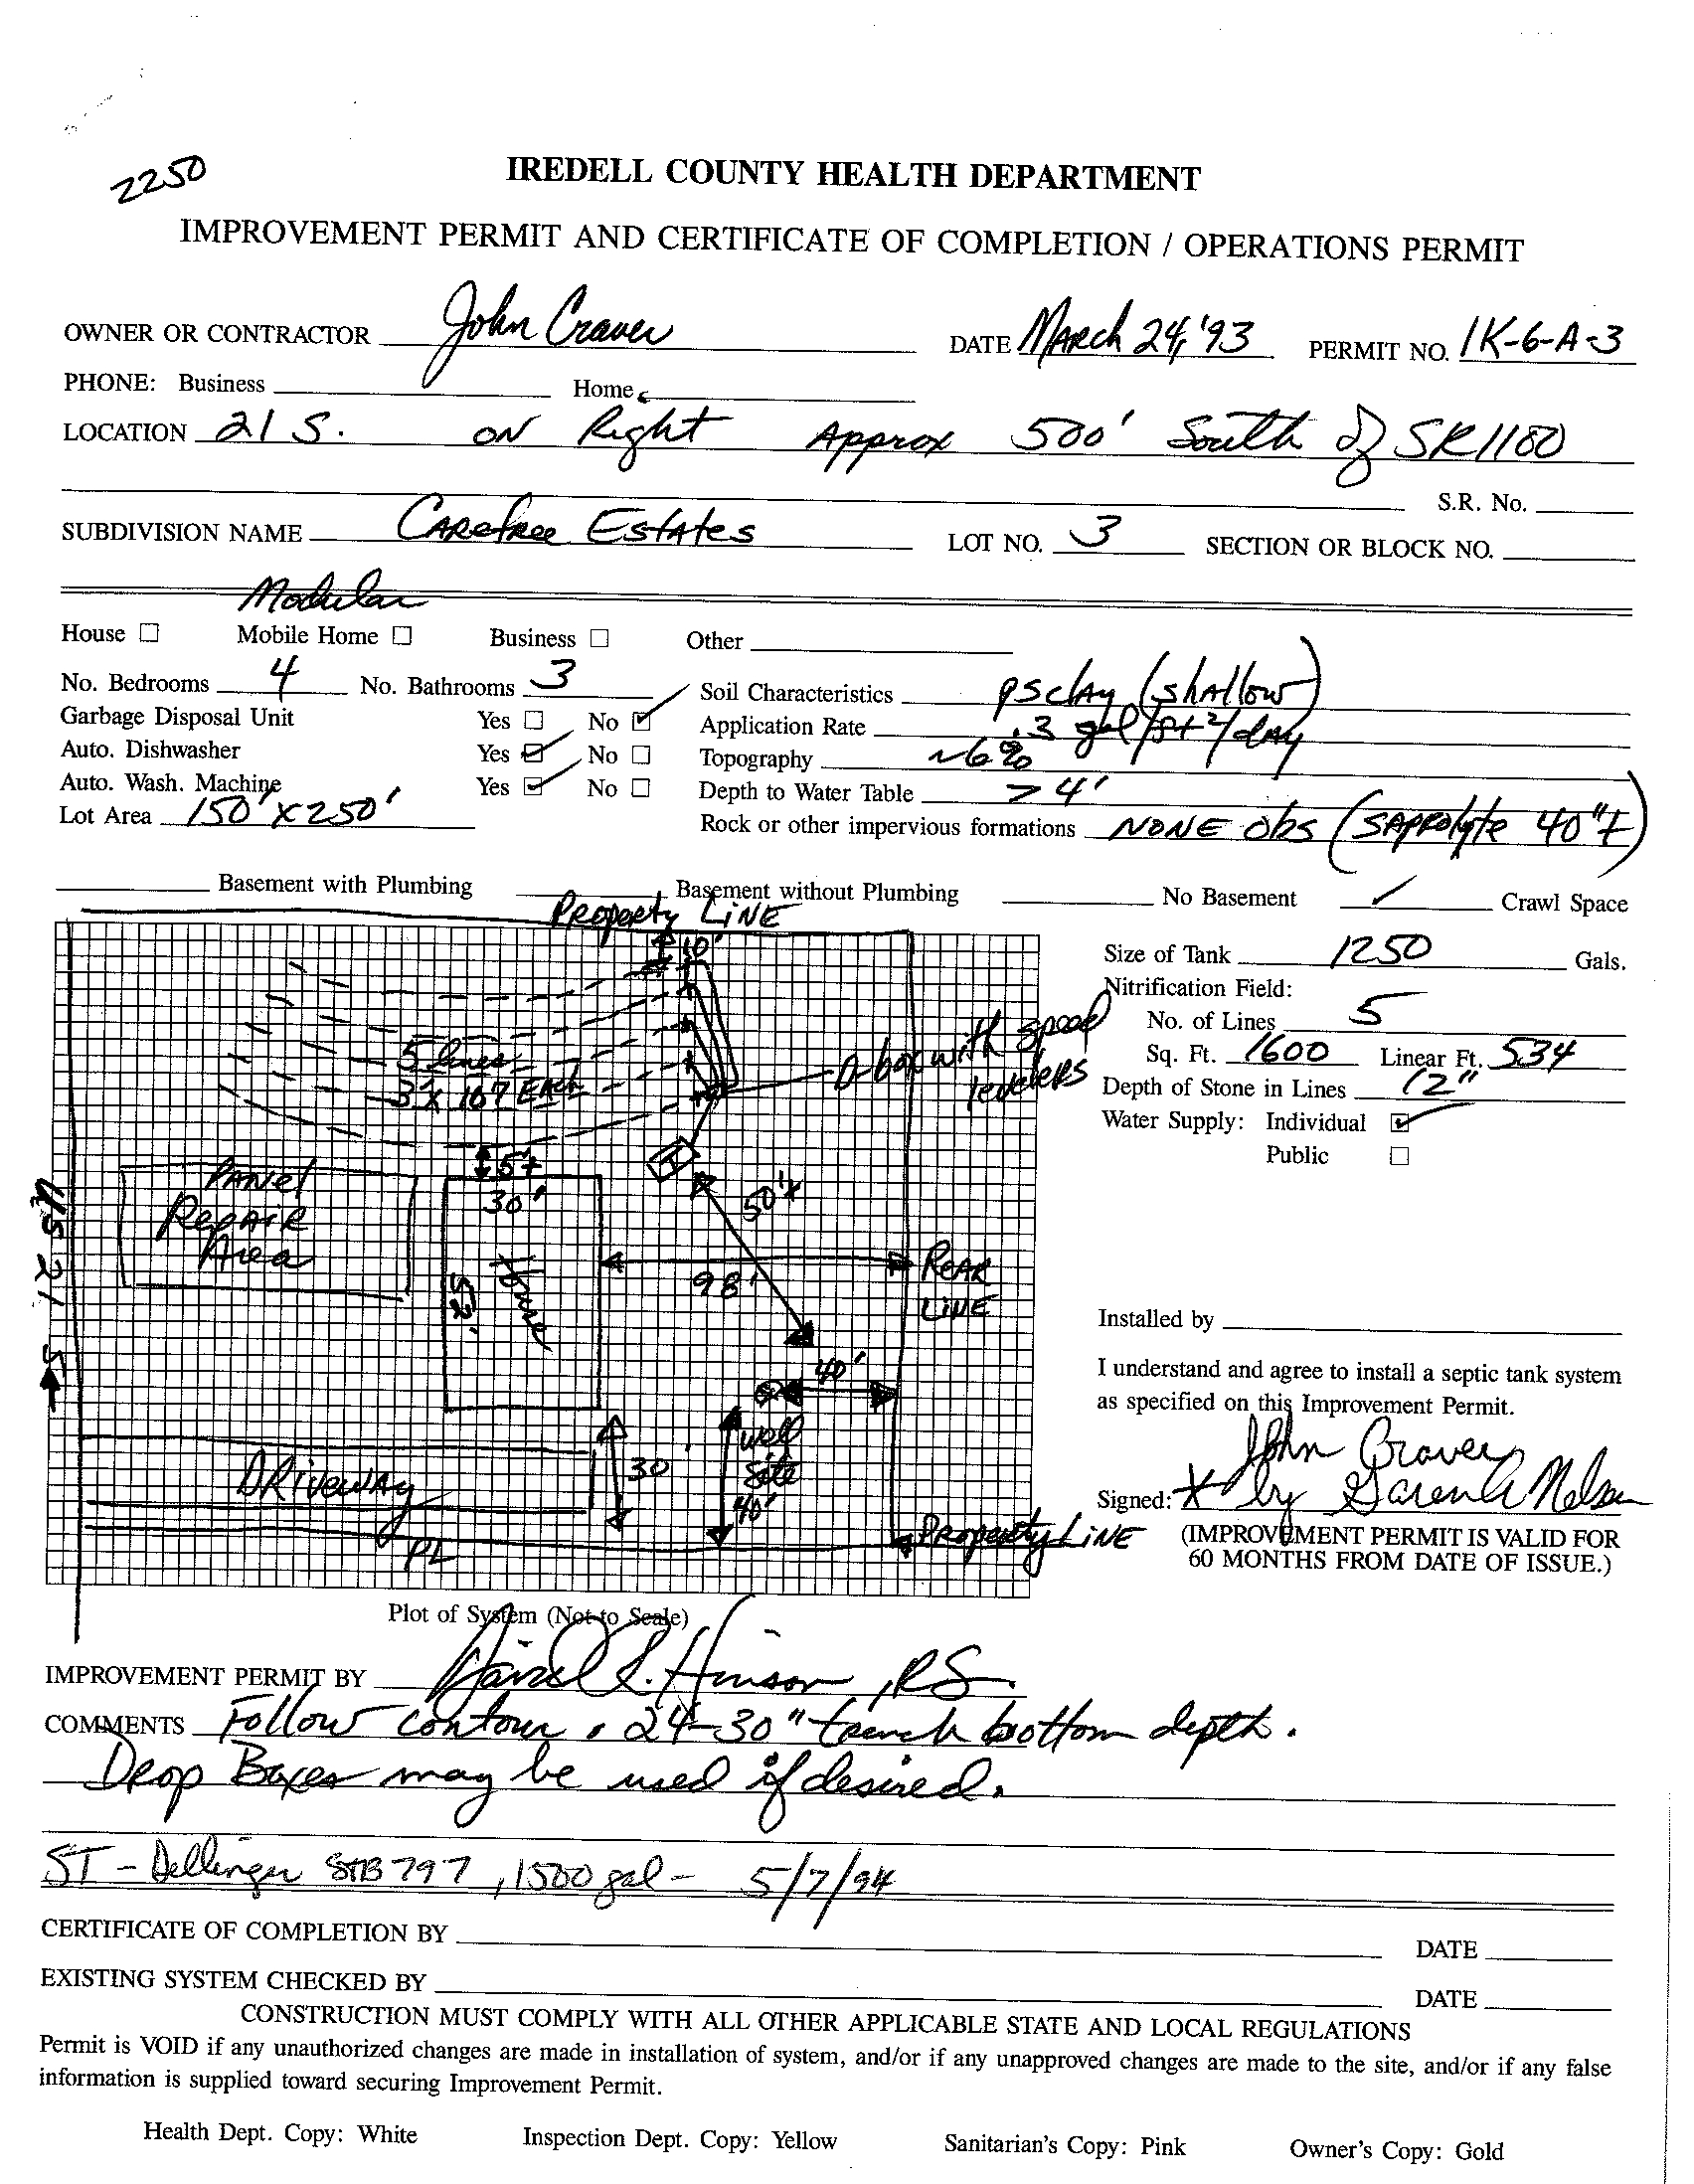 2250
IREDELL COUNTY HEALTH DEPARTMENT
IMPROVEMENT PERMIT AND CERTIFICATE OF COMPLETION / OPERATIONS PERMIT
OWNER OR CONTRACTOR John Craver DATE MARCH 24, '93 PERMIT NO. 1K-6-A-3
PHONE: Business Home
LOCATION 21 S. ON Right Approx 500' South of SR1180
S.R. No.
SUBDIVISION NAME CAREfRee EstAtes LOT NO. 3 SECTION OR BLOCK NO.
Modular
House ☐ Mobile Home ☐ Business ☐ Other
No. Bedrooms 4 No. Bathrooms 3 Soil Characteristics psclAy (shAllow)
Garbage Disposal Unit Yes ☐ No ☑ Application Rate .3 gal/ft²/dAy
Auto. Dishwasher Yes ☑ No ☐ Topography ~6%
Auto. Wash. Machine Yes ☑ No ☐ Depth to Water Table > 4'
Lot Area 150' X 250' Rock or other impervious formations NONE obs (SAPROlyte 40"±)
Basement with Plumbing Basement without Plumbing No Basement ✓ Crawl Space
PROPERty LiNE
10'
5 lines
3' X 107' EACh
D-box with speed
levelers
5'+
PANel
RepAiR
Area
30'
52'
House
50'+
98'
REAR
LiNE
US 21 S
40'
well
site
40'
30'
DRiVewAy
PL
PROperty LiNE
Size of Tank 1250 Gals.
Nitrification Field:
No. of Lines 5
Sq. Ft. 1600 Linear Ft. 534
Depth of Stone in Lines 12"
Water Supply: Individual ☑
Public ☐
Installed by
I understand and agree to install a septic tank system
as specified on this Improvement Permit.
John Craver
Signed: X by Nelson
(IMPROVEMENT PERMIT IS VALID FOR
60 MONTHS FROM DATE OF ISSUE.)
Plot of System (Not to Scale)
IMPROVEMENT PERMIT BY David S. Hinson, RS.
COMMENTS Follow contour. 24-30" trench bottom depth.
Drop Boxes may be used if desired.
ST - Dellinger STB 797, 1500 gal - 5/7/94
CERTIFICATE OF COMPLETION BY DATE
EXISTING SYSTEM CHECKED BY DATE
CONSTRUCTION MUST COMPLY WITH ALL OTHER APPLICABLE STATE AND LOCAL REGULATIONS
Permit is VOID if any unauthorized changes are made in installation of system, and/or if any unapproved changes are made to the site, and/or if any false
information is supplied toward securing Improvement Permit.
Health Dept. Copy: White Inspection Dept. Copy: Yellow Sanitarian's Copy: Pink Owner's Copy: Gold